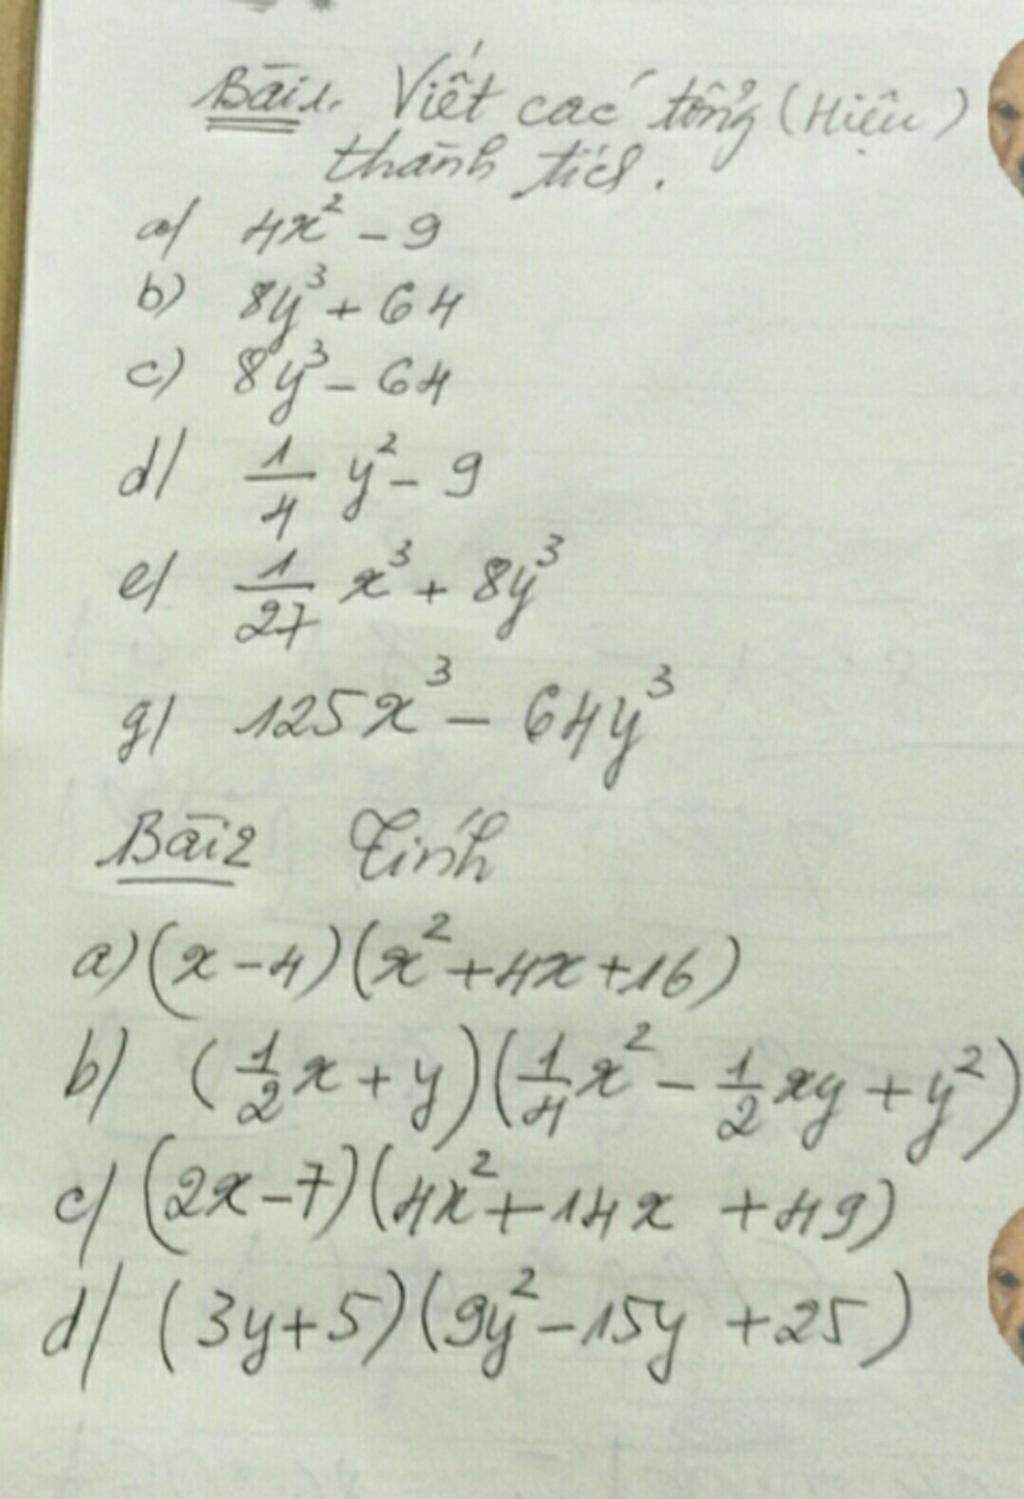 Bài 1. Viết các tổng (Hiệu)
thành tích.
a/ 4x² - 9
b) 8y³ + 64
c) 8y³ - 64
d/ 1/4 y² - 9
e/ 1/27 x³ + 8y³
g/ 125x³ - 64y³
Bài 2 Tính
a) (x - 4)(x² + 4x + 16)
b/ (1/2 x + y)(1/4 x² - 1/2 xy + y²)
c/ (2x - 7)(4x² + 14x + 49)
d/ (3y + 5)(9y² - 15y + 25)